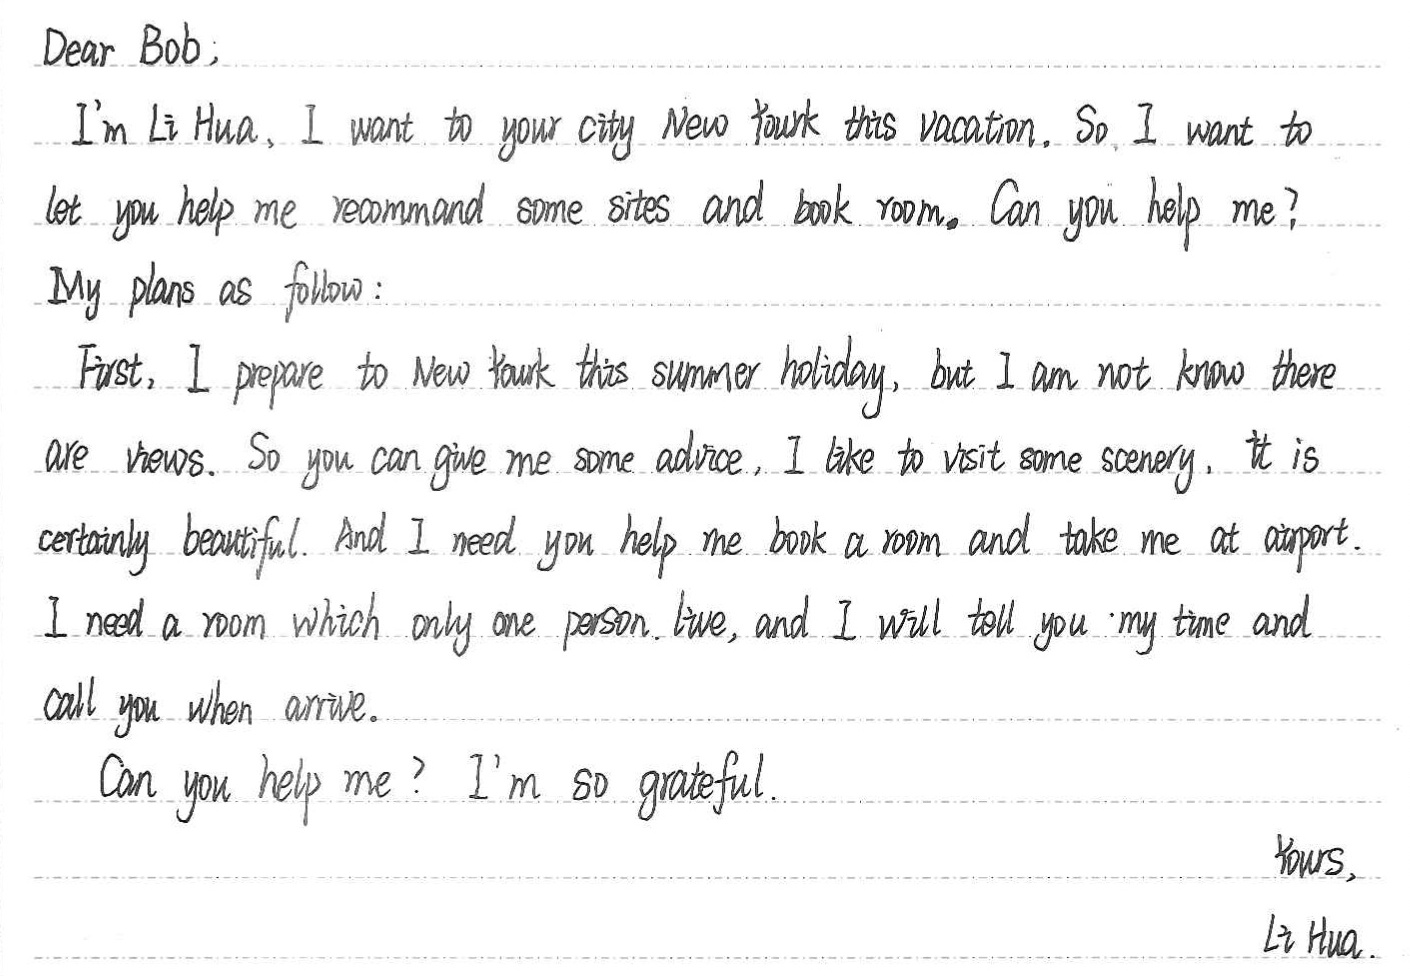 Dear Bob;
I'm Li Hua, I want to your city New Yourk this vacation. So, I want to
let you help me recommand some sites and book room. Can you help me?
My plans as follow:
First, I prepare to New Yourk this summer holiday, but I am not know there
are views. So you can give me some advice, I like to visit some scenery. it is
certainly beautiful. And I need you help me book a room and take me at airport.
I need a room which only one person live, and I will tell you my time and
call you when arrive.
Can you help me? I'm so grateful.
Yours,
Li Hua.